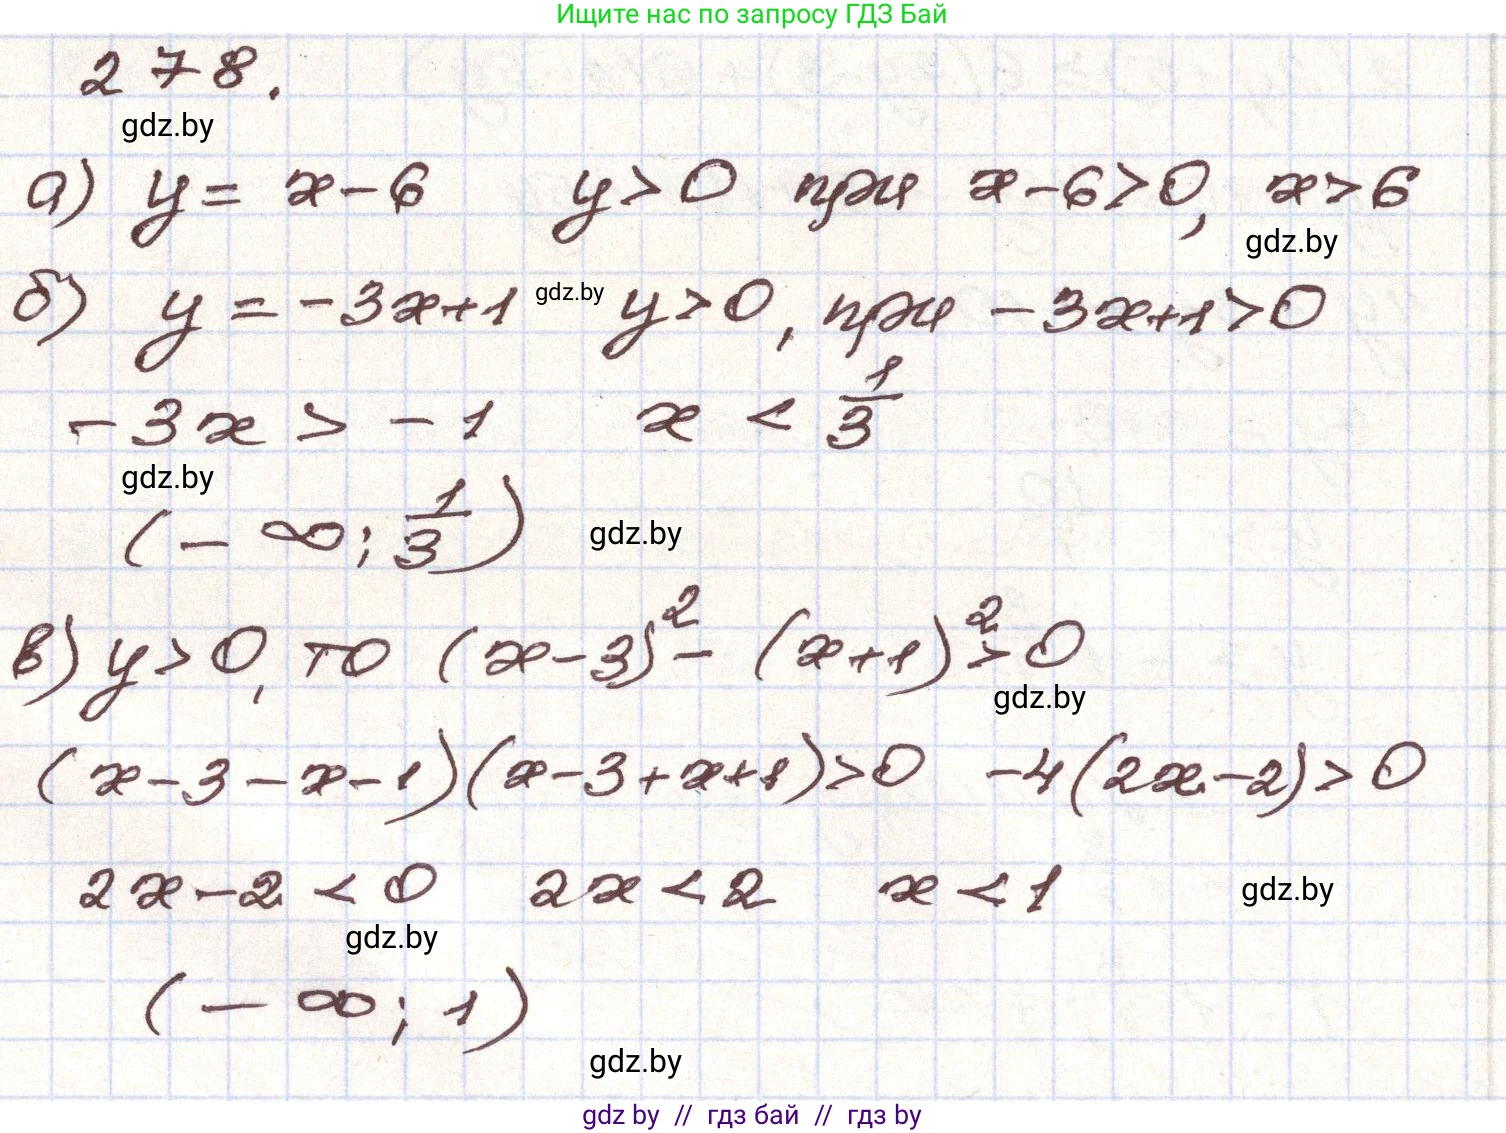 Ищите нас по запросу ГДЗ Бай
278.
gdz.by
а) y = x - 6 y > 0 при x - 6 > 0, x > 6
gdz.by
б) y = -3x+1 gdz.by y > 0, при -3x+1 > 0
-3x > -1 x < 1/3
gdz.by
(-∞; 1/3) gdz.by
в) y > 0, то (x-3)² - (x+1)² > 0
gdz.by
(x-3-x-1)(x-3+x+1) > 0 -4(2x-2) > 0
2x-2 < 0 2x < 2 x < 1 gdz.by
gdz.by
(-∞; 1)
gdz.by
gdz by // гдз бай // гдз by